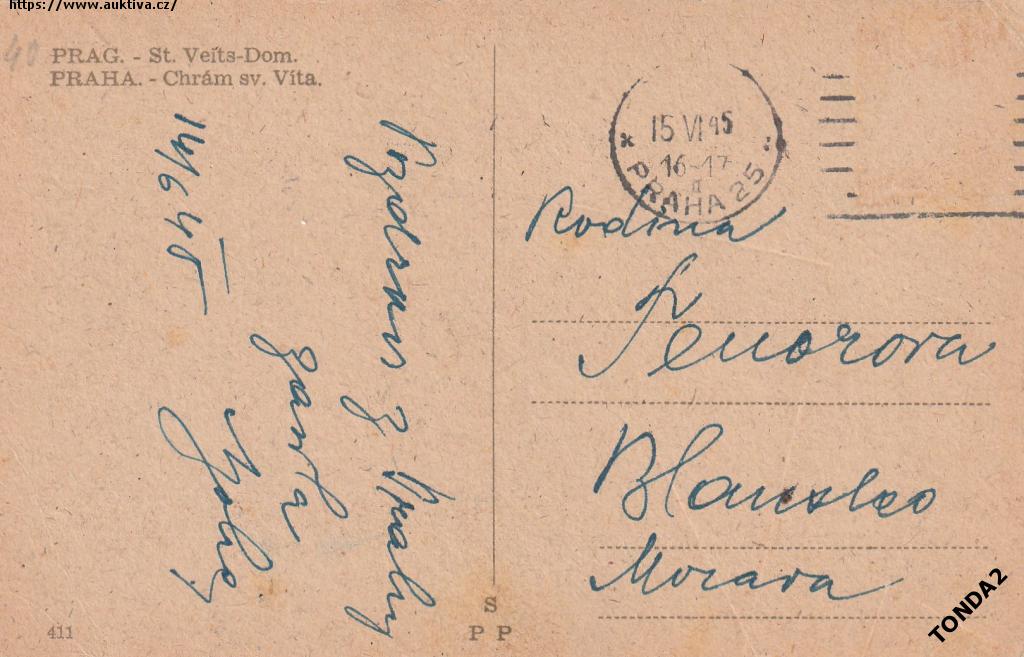 https://www.auktiva.cz/
40
PRAG. - St. Veits-Dom.
PRAHA. - Chrám sv. Víta.
14/6 45
Pozdrav z Prahy
15 VI 45
16-17
II
PRAHA 25
Rodina
Fenorova
Blansko
Morava
S
P P
411
TONDA2